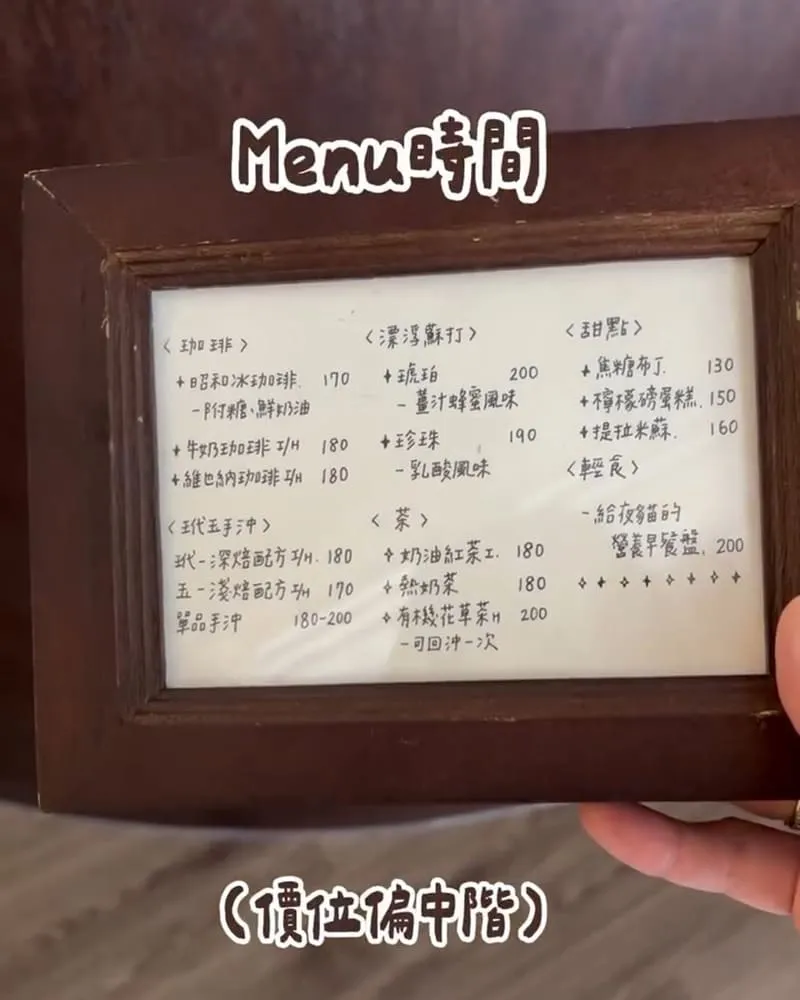 Menu時間
〈珈琲〉
+昭和冰珈琲. 170
-附糖、鮮奶油
+牛奶珈琲 I/H 180
+維也納珈琲 I/H 180
〈玳五手沖〉
玳-深焙配方 I/H. 180
五-淺焙配方 I/H 170
單品手沖 180-200
〈漂浮蘇打〉
+琥珀 200
-薑汁蜂蜜風味
+珍珠 190
-乳酸風味
〈茶〉
✧奶油紅茶 I. 180
✧熱奶茶 180
✧有機花草茶 H 200
-可回沖一次
〈甜點〉
+焦糖布丁. 130
+檸檬磅蛋糕. 150
+提拉米蘇. 160
〈輕食〉
-給夜貓的
營養早餐盤. 200
(價位偏中階)